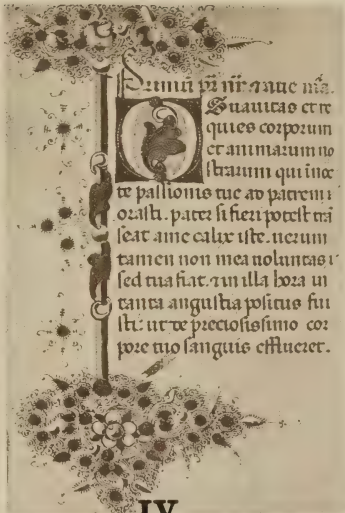 Primũ pr̃ nr̃ ⁊ aue mã.
O Suauitas et re
quies corporum
et animarum no
strarum qui ĩ noc
te passionis tue ad patrem
orasti. pater si fieri potest trã
seat a me calix iste. uerum
tamen non mea uoluntas
sed tua fiat. ⁊ in illa hora in
tanta angustia positus fui
sti: ut de preciosissimo cor
pore tuo sanguis efflueret.
IV